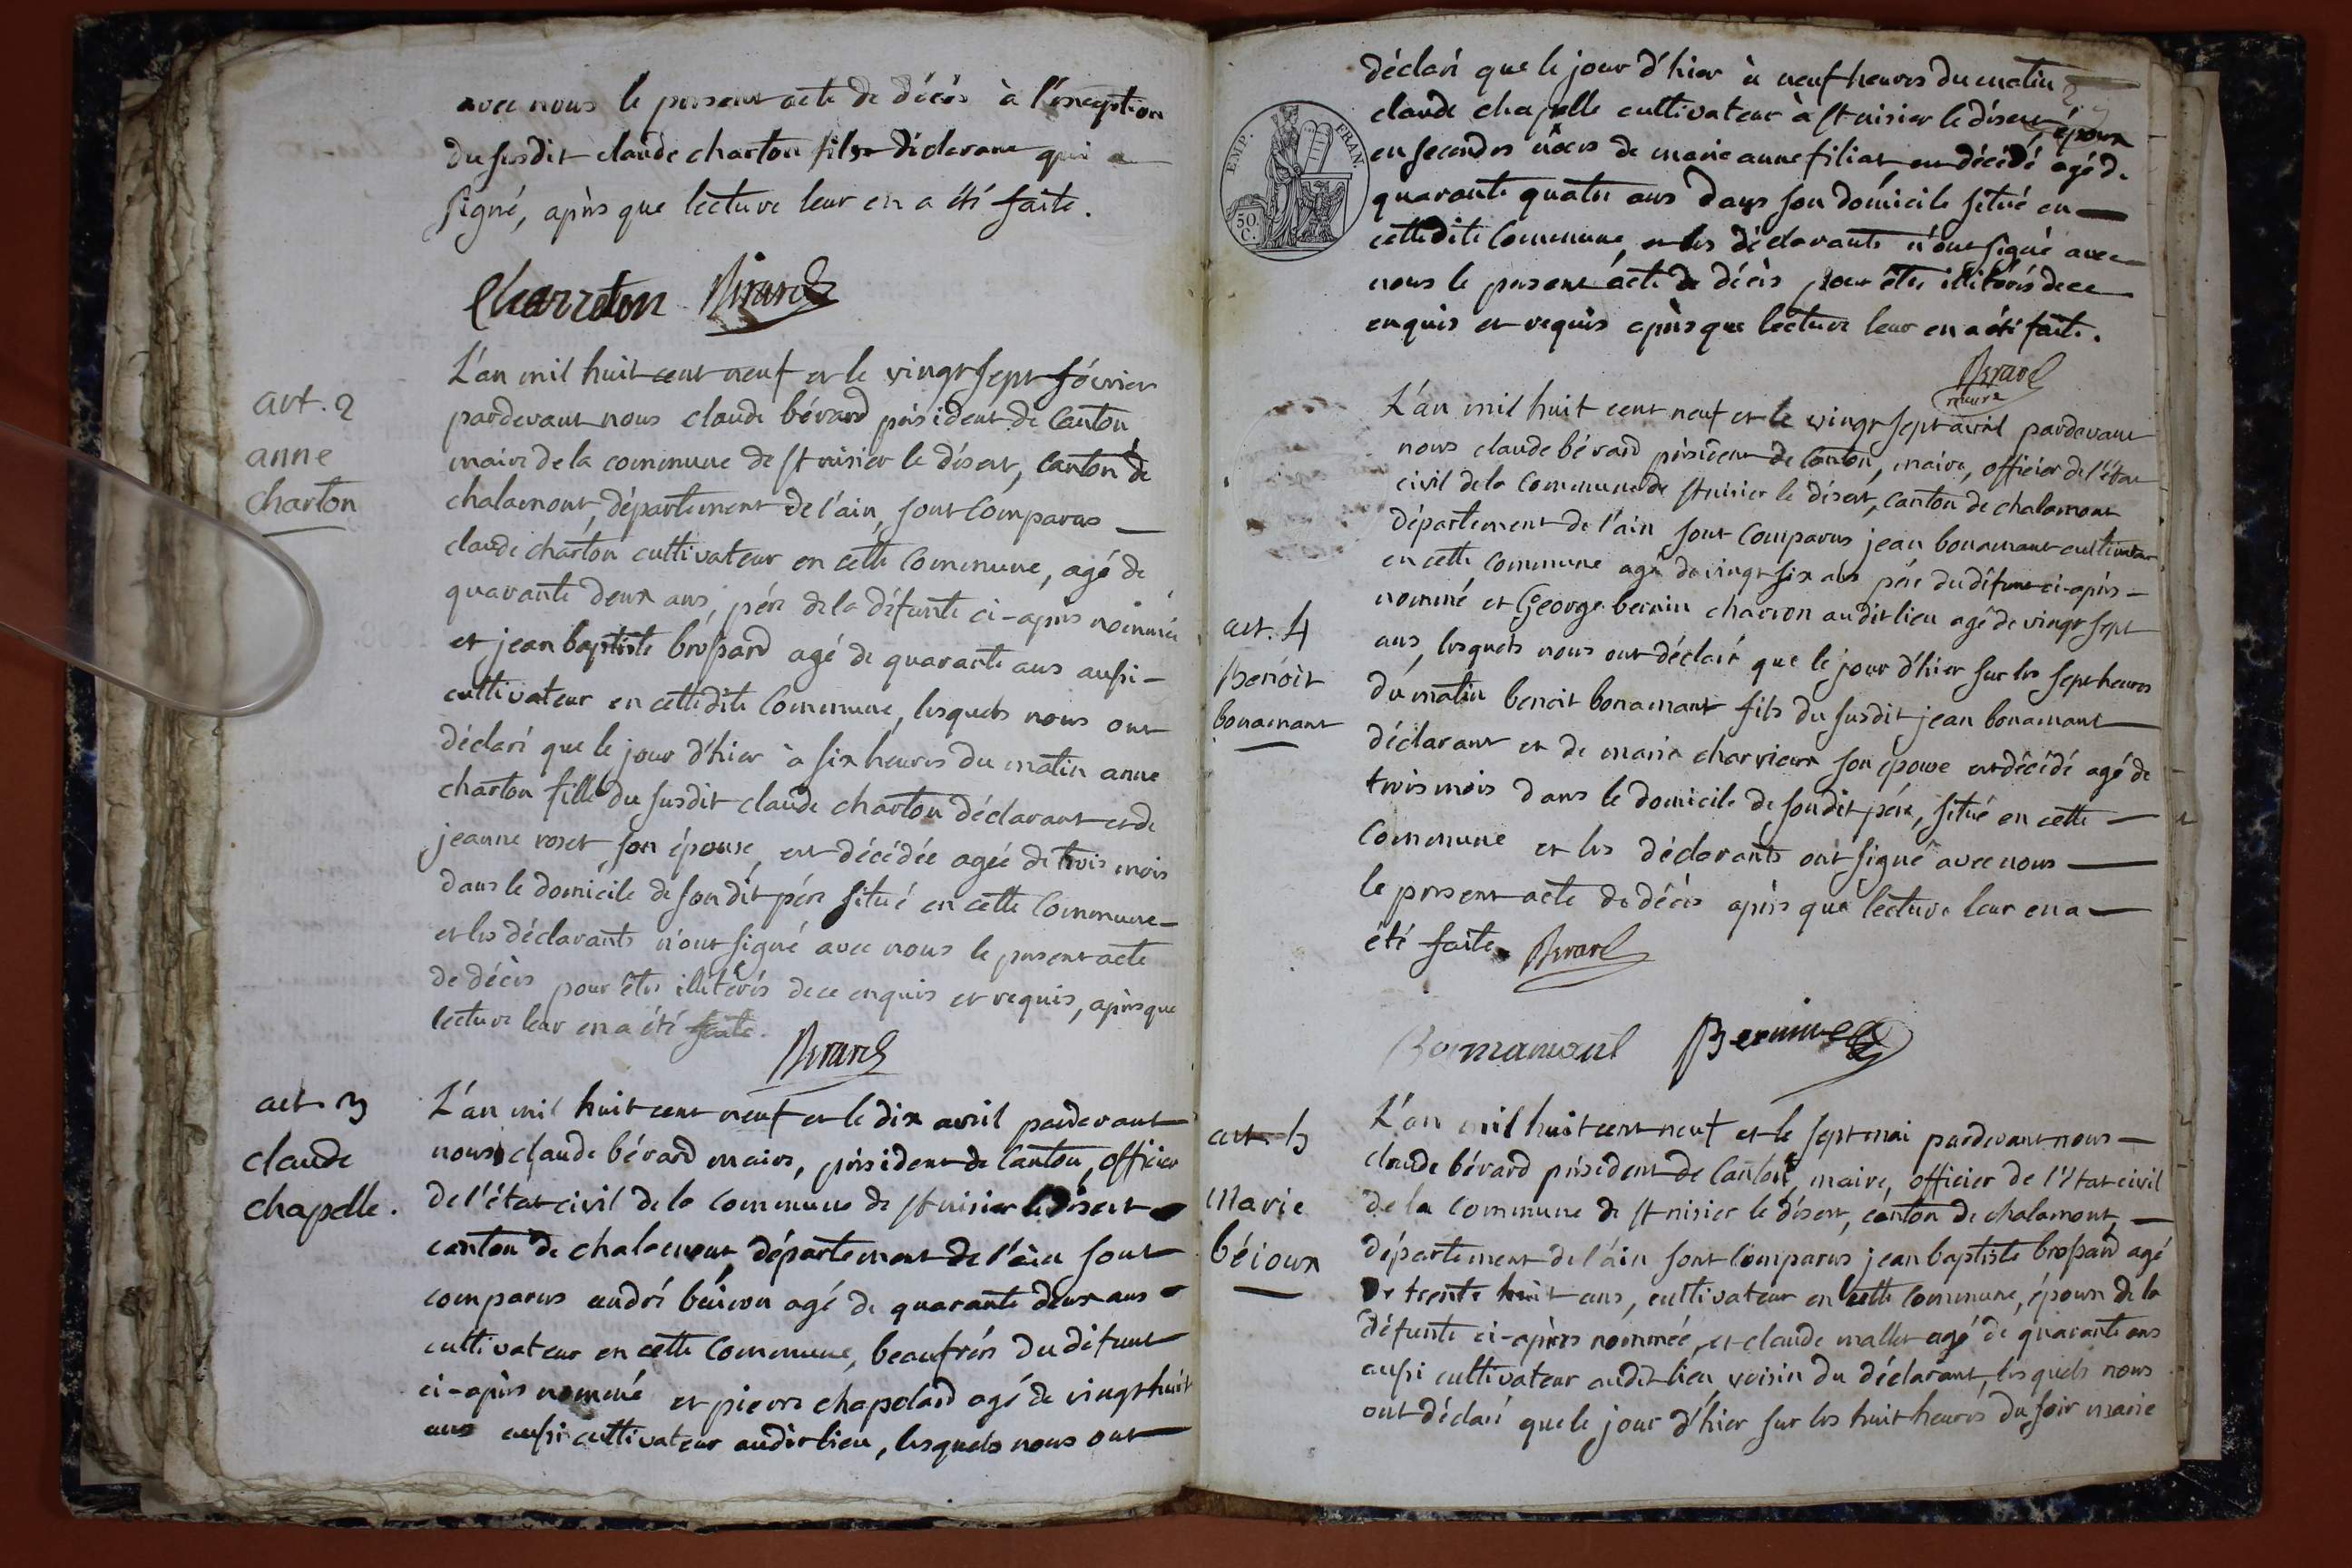 avec nous le présent acte de décès à l'exception
du susdit claude charton fils déclarant qui a
signé, après que lecture leur en a été faite.
Charreton Bérard
art. 2
anne
charton
L'an mil huit cent neuf et le vingt sept février
pardevant nous claude bérard président de Canton
maire de la commune de st nisier le désert, canton de
chalamont, département de l'ain, sont Comparus
claude charton cultivateur en cette Commune, agé de
quarante deux ans, père de la défunte ci-après nommée
et jean baptiste brossard agé de quarante ans aussi
cultivateur en cettedite Commune, lesquels nous ont
déclaré que le jour d'hier à six heures du matin anne
charton fille du susdit claude charton déclarant et de
jeanne roset, son épouse, est décédée agée de trois mois
dans le domicile de sondit père situé en cette Commune
et les déclarants n'ont signé avec nous le présent acte
de décès pour être illitérés de ce enquis et requis, après que
lecture leur en a été faite.
Bérard
art. 3
claude
chapelle.
L'an mil huit cent neuf et le dix avril pardevant
nous claude bérard maire, président de Canton, officier
de l'état civil de la Commune de st nisier le Désert
canton de chalamont, département de l'ain sont
comparus andré agé de quarante deux ans
cultivateur en cette Commune, beaufrère du défunt
ci-après nommé et pierre chapelard agé de vingt huit
ans aussi cultivateur audit lieu, lesquels nous ont
déclaré que le jour d'hier à neuf heures du matin
EMP. FRAN.
50 C.
claude chapelle cultivateur à st nisier le désert, époux
en secondes nôces de marie anne filiat, est décédé agé de
quarante quatre ans dans son domicile situé en
cettedite Commune, et les déclarants n'ont signé avec
nous le présent acte de décès pour être illitérés de ce
enquis et requis après que lecture leur en a été faite.
Bérard
maire
L'an mil huit cent neuf et le vingt sept avril pardevant
nous claude bérard président de Canton, maire, officier de l'état
civil de la Commune de st nisier le désert, canton de chalamont
département de l'ain sont Comparus jean bonamant cultivateur
en cette commune agé de vingt six ans père du défunt ci-après
nommé et George bernin charron audit lieu agé de vingt sept
art. 4
Benoit
bonamant
ans, lesquels nous ont déclaré que le jour d'hier sur les sept heures
du matin benoit bonamant fils du susdit jean bonamant
déclarant et de marie charvieux son épouse est décédé agé de
trois mois dans le domicile de sondit père, situé en cette
Commune et les déclarants ont signé avec nous
le présent acte de décès après que lecture leur en a
été faite. Bérard
Bonamant Bernin
art. 5
Marie
béjoux
L'an mil huit cent neuf et le sept mai pardevant nous
claude bérard président de Canton, maire, officier de l'état civil
de la Commune de st nisier le désert, canton de chalamont,
département de l'ain sont Comparus jean baptiste brossard agé
De trente huit ans, cultivateur en cette Commune, époux de la
défunte ci-après nommée, et claude mallet agé de quarante ans
aussi cultivateur audit lieu voisin du déclarant, lesquels nous
ont déclaré que le jour d'hier sur les huit heures du soir marie